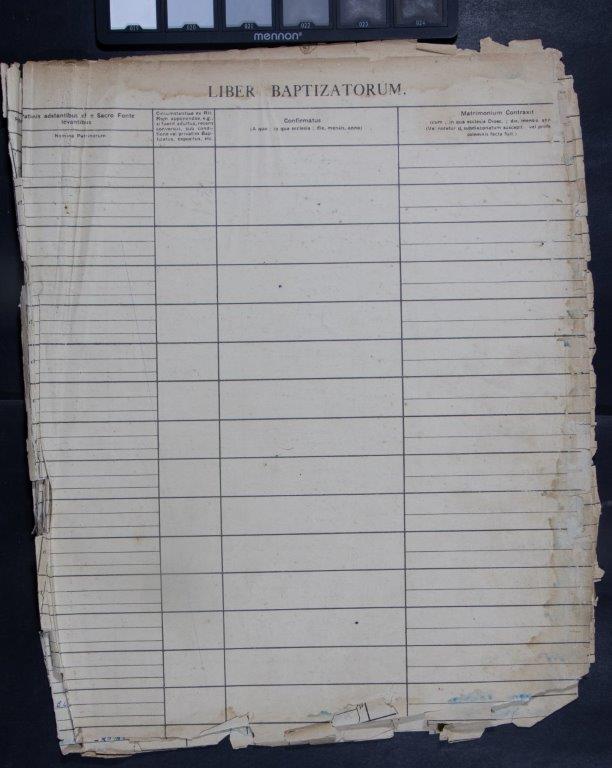 019 020 021 022 023 024
mennon
LIBER BAPTIZATORUM.
adstantibus et e Sacro Fonte
levantibus
Nomina Patrinorum
Circumstantiae ex Rit.
Rom. apponendae, e.g.:
si fuerit adultus, recens
conversus, sub condi-
tione vel privatim Bap-
tizatus, expositus, etc.
Confirmatus
(A quo ; in qua ecclesia ; die, mensis, anno)
Matrimonium Contraxit
(cum ; in qua ecclesia Dioec. ; die, mensis
(Vel notetur si subdiaconatum suscepit vel
solemnis facta fuit.)